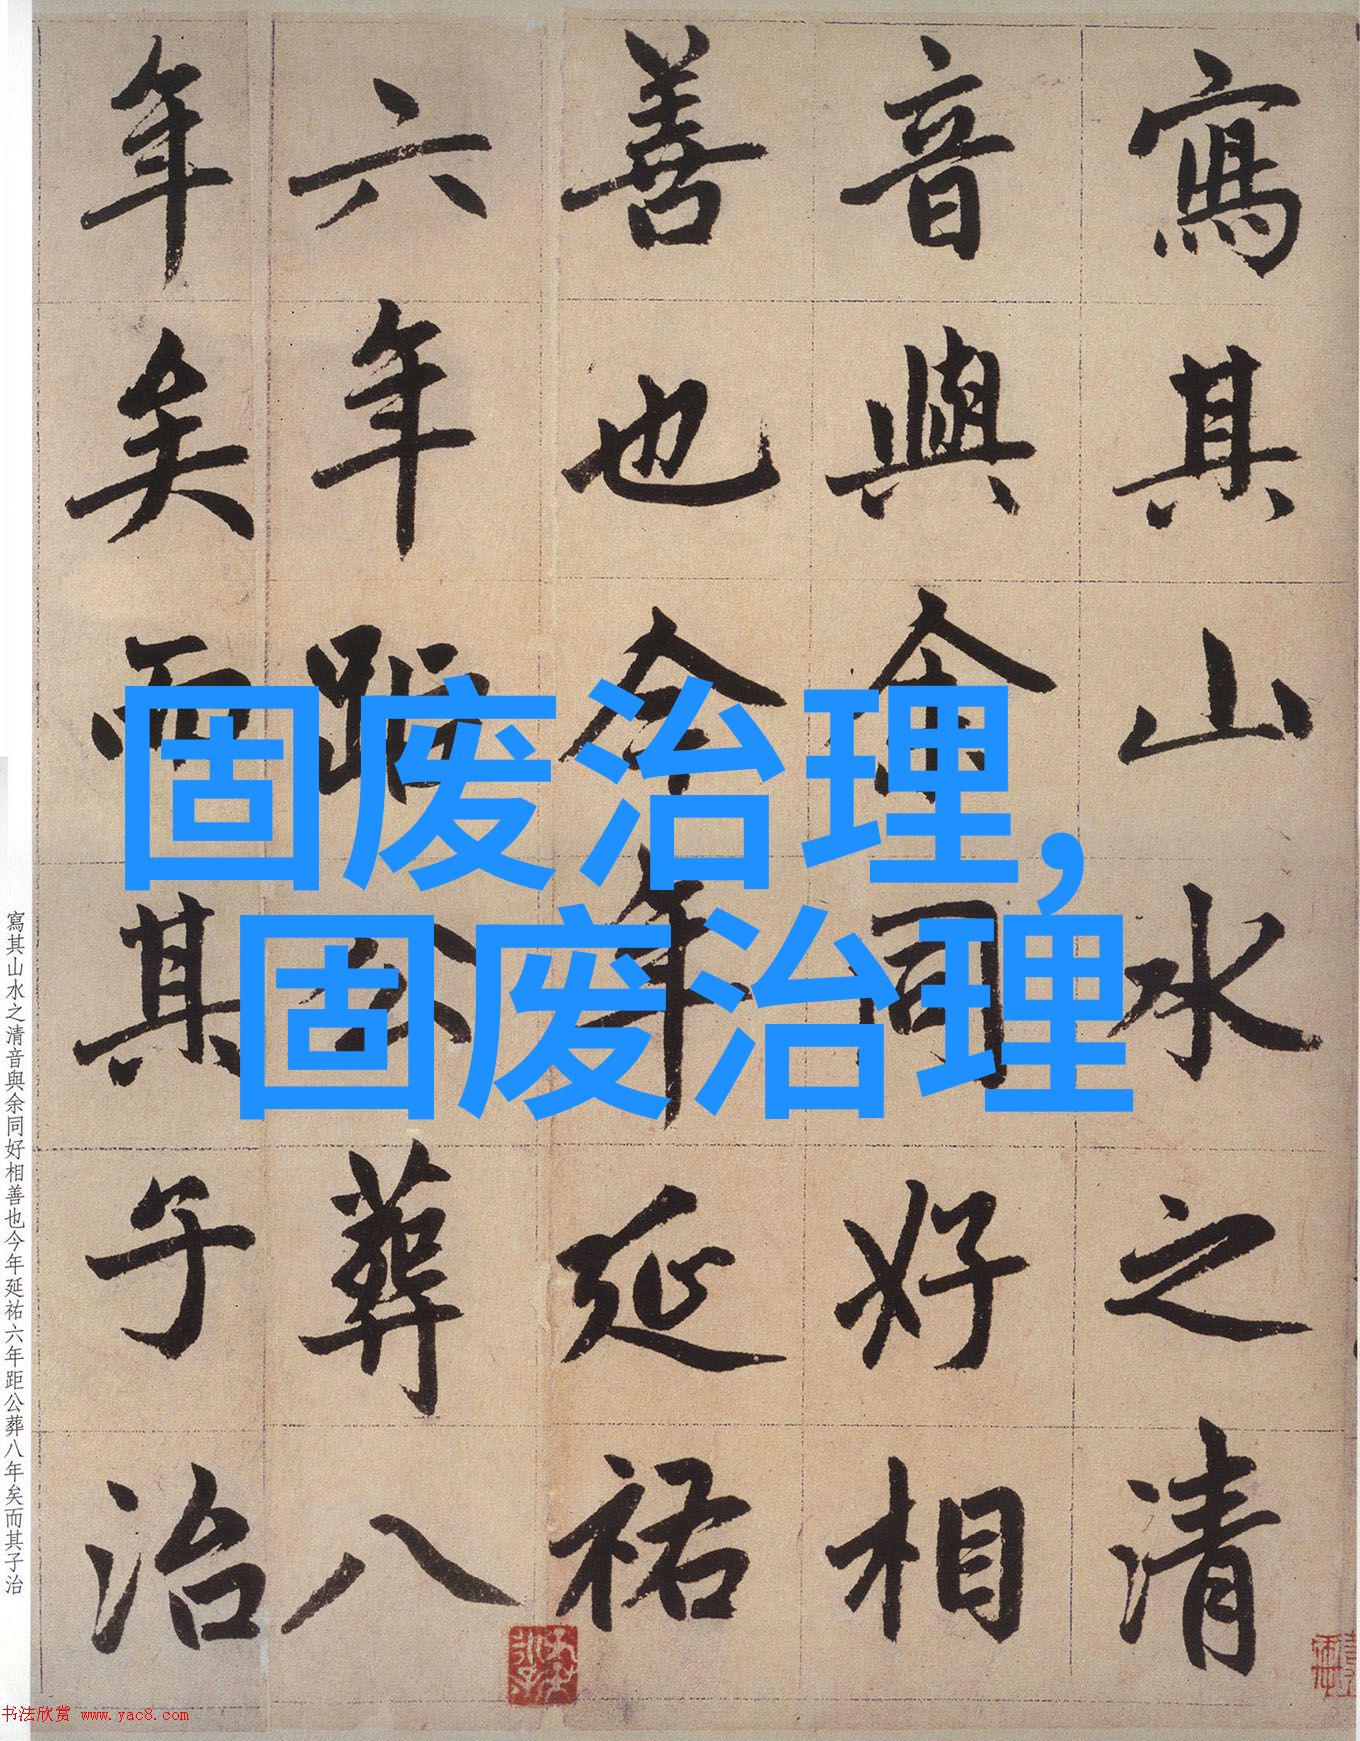 寫其山水之清
音與余同好相
善也今年延祐
六年距公葬八
年矣而其子治
固废治理,
固废治理
寫其山水之清音與余同好相善也今年延祐六年距公葬八年矣而其子治
书法欣赏 www.yac8.com